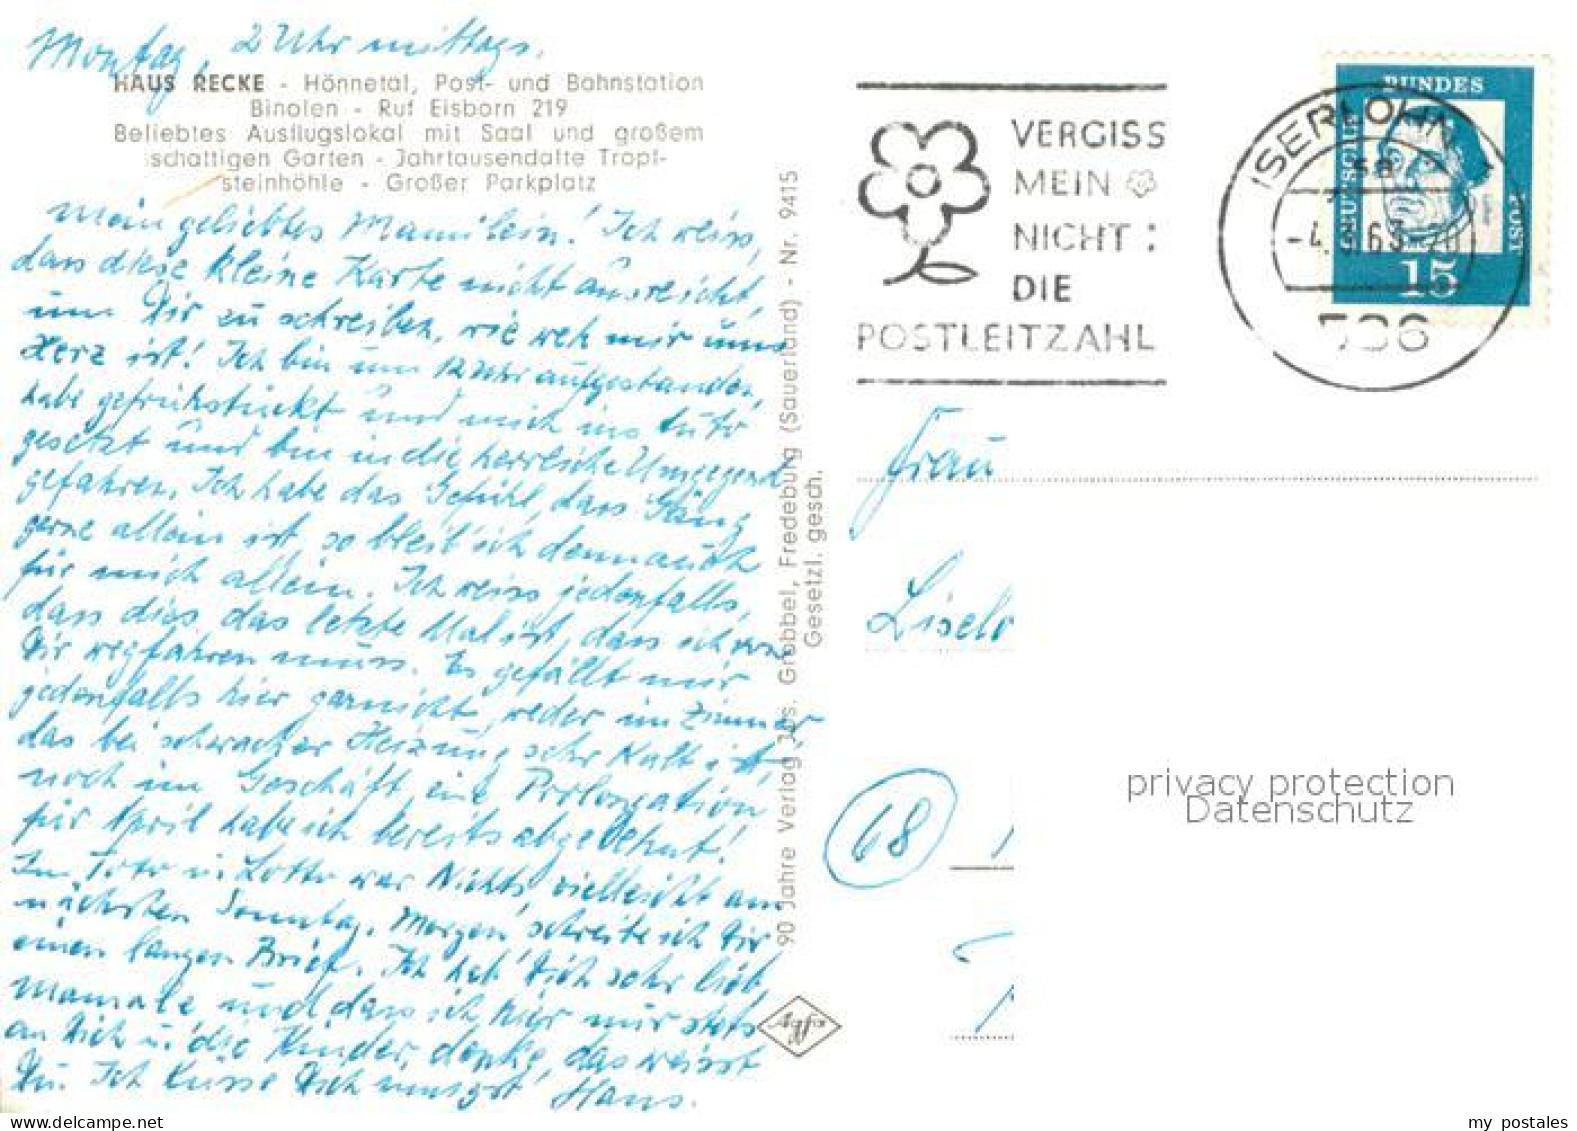 Montag, 2 Uhr mittags.
HAUS RECKE - Hönnetal, Post- und Bahnstation
Binolen - Ruf Eisborn 219
Beliebtes Ausflugslokal mit Saal und großem
schattigen Garten - Jahrtausendalte Tropf-
steinhöhle - Großer Parkplatz
Mein geliebtes Mamilein! Ich weiss,
dass diese kleine Karte nicht ausreicht,
um Dir zu schreiben, wie weh mir ums
Herz ist! Ich bin um 12 Uhr aufgestanden,
habe gefrühstückt und mich ins Auto
gesetzt und bin in die herrliche Umgegend
gefahren. Ich habe das Gefühl, dass
gerne allein ist, so bleib ich demnach
für mich allein. Ich weiss jedenfalls,
dass dies das letzte Mal ist, dass ich von
Dir wegfahren muss. Es gefällt mir
jedenfalls hier garnicht, weder im Zimmer,
das bei schwacher Heizung sehr kalt ist,
noch im Geschäft, eine Prolongation
für April habe ich bereits abgelehnt!
Im Toto u. Lotto war Nichts, vielleicht am
nächsten Sonntag. Morgen schreibe ich Dir
einen langen Brief. Ich hab' Dich sehr lieb,
Mamale und dass ich hier nur stets
an Dich u. die Kinder denke, das weisst
Du. Ich küsse Dich innigst Hans.
90 Jahre Verlag Jos. Grobbel, Fredeburg (Sauerland) - Nr. 9415
Gesetzl. gesch.
Agfa
VERGISS
MEIN
NICHT:
DIE
POSTLEITZAHL
ISERLOHN
sa
-4. 63-20
586
BUNDES
POST
DEUTSCHE
15
Frau
Liselo
68
privacy protection
Datenschutz
my postales